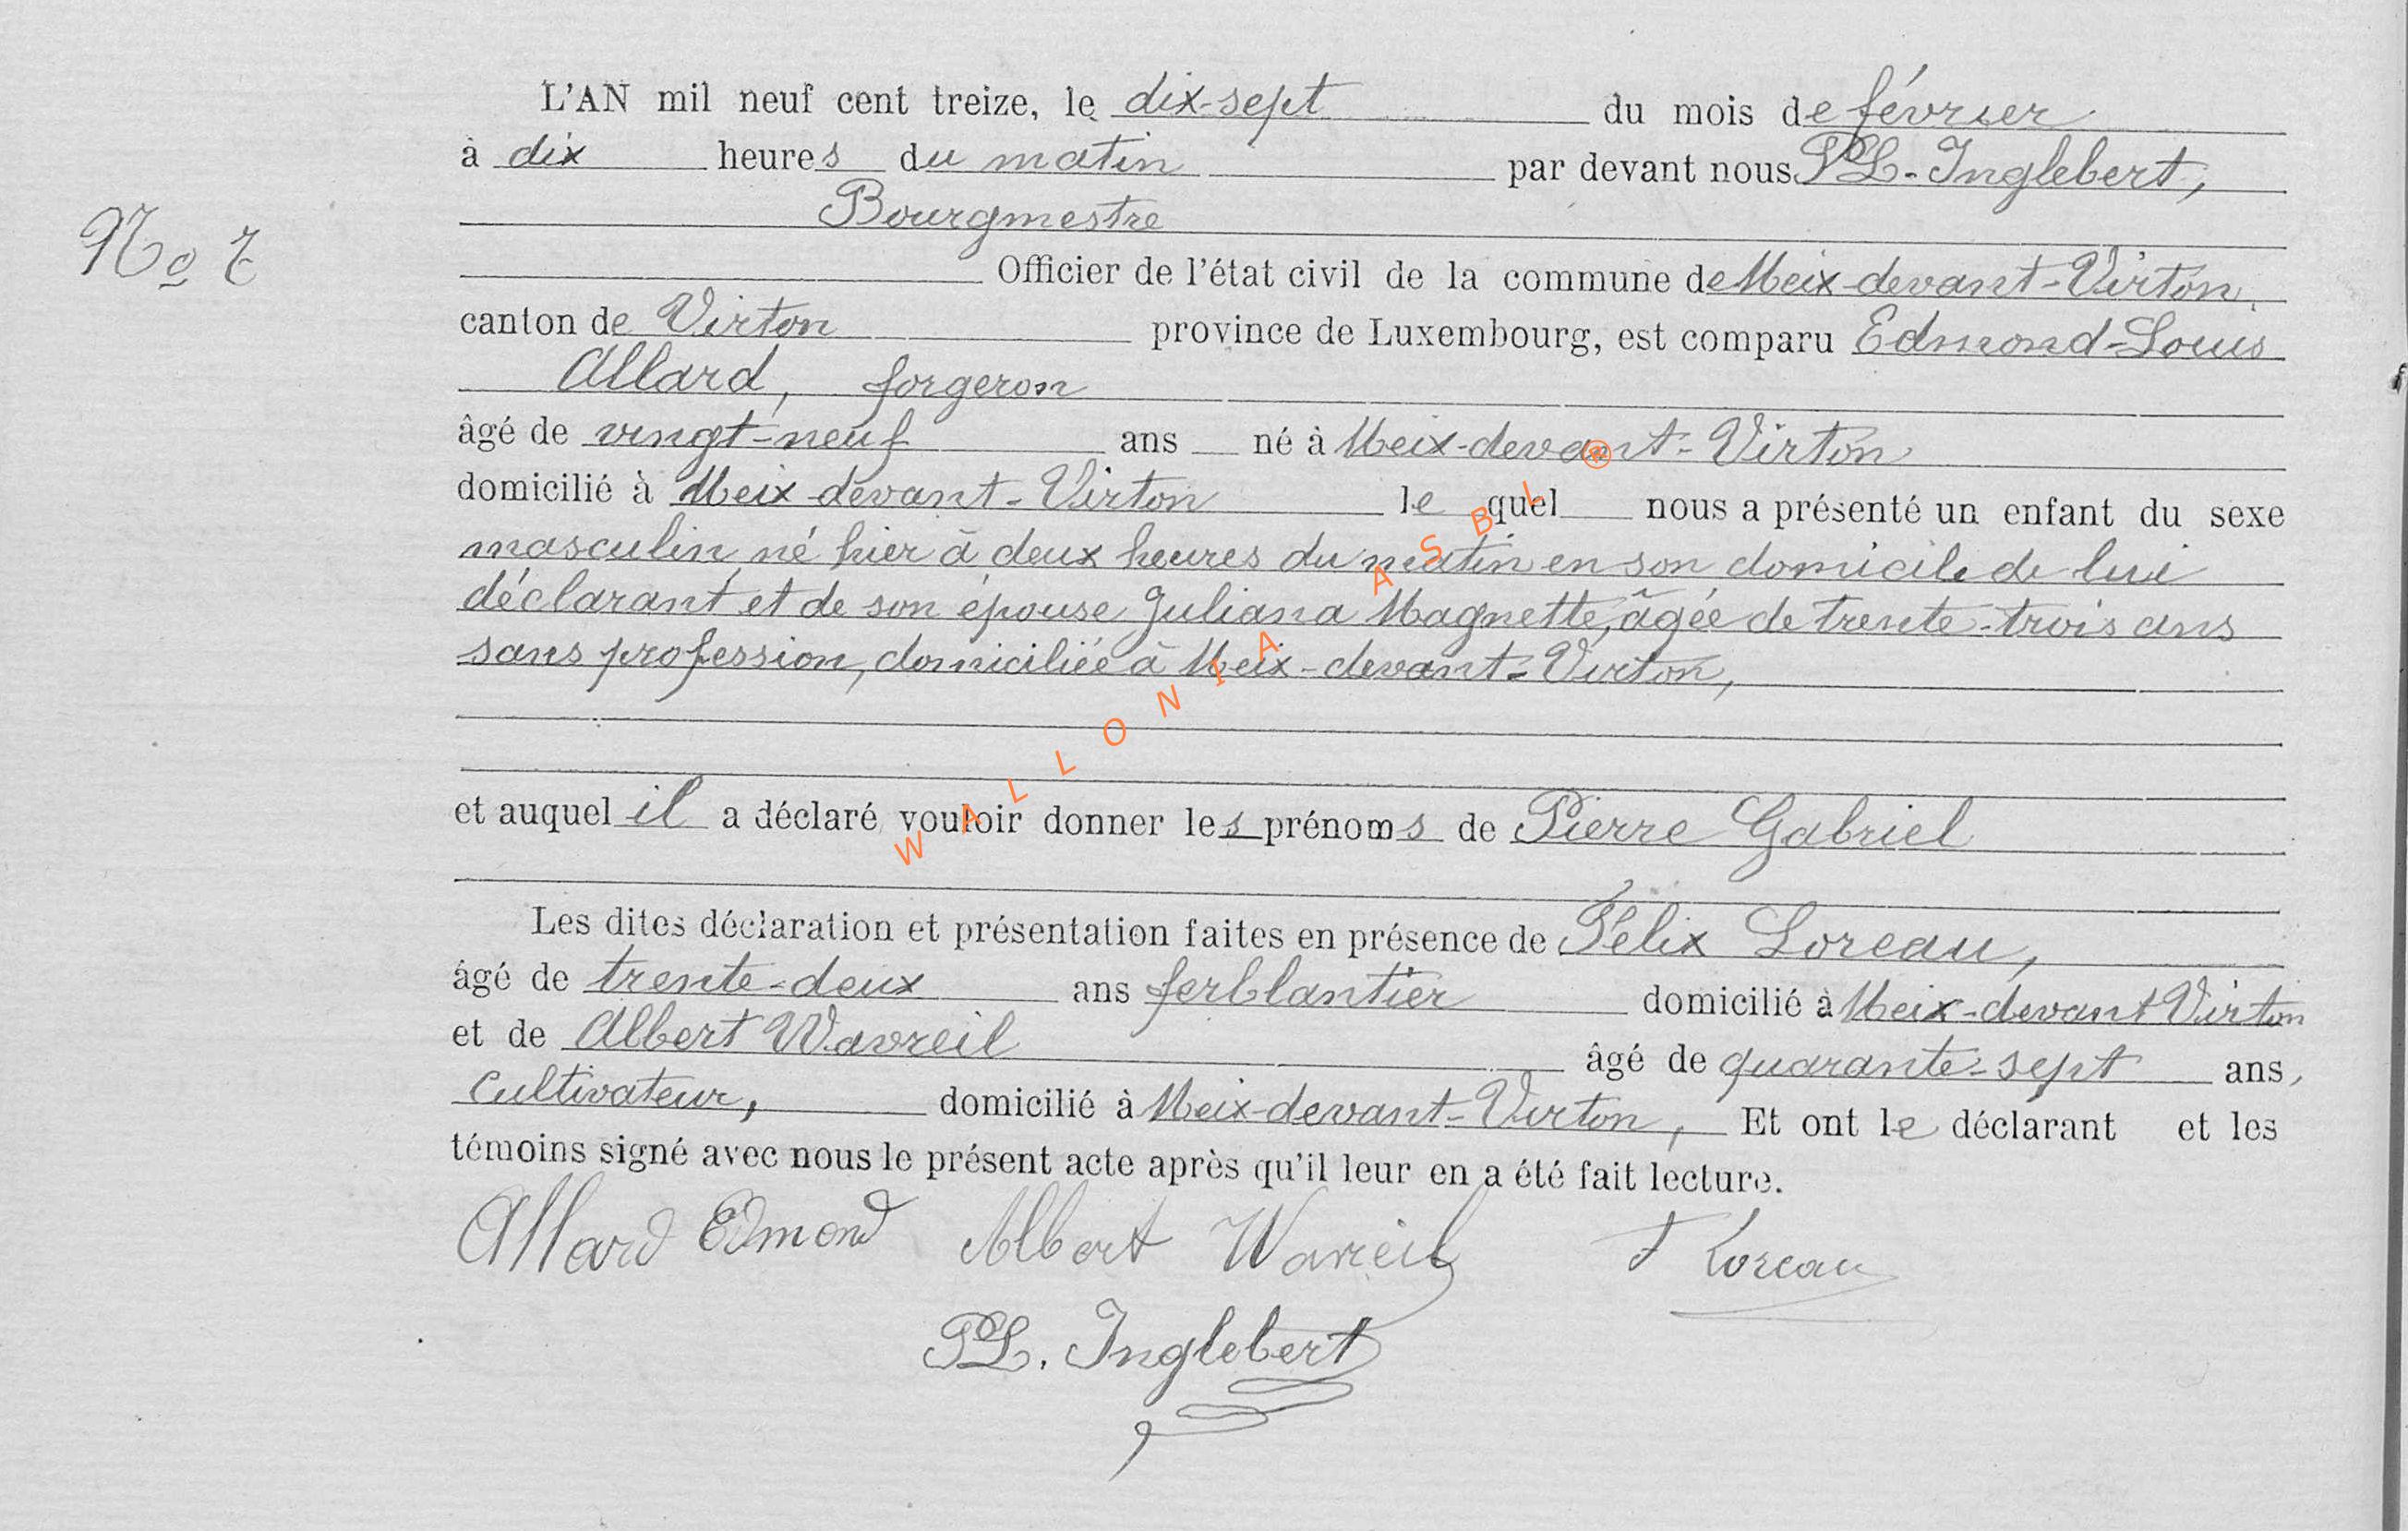 L'AN mil neuf cent treize, le dix-sept du mois de février
à dix heures du matin par devant nous PL. Inglebert,
Bourgmestre
No 7
Officier de l'état civil de la commune de Meix-devant-Virton,
canton de Virton province de Luxembourg, est comparu Edmond-Louis
Allard, forgeron
âgé de vingt-neuf ans né à Meix-devant-Virton
domicilié à Meix-devant-Virton le quel nous a présenté un enfant du sexe
masculin, né hier à deux heures du matin en son domicile de lui
déclarant et de son épouse Juliana Magnette, âgée de trente-trois ans
sans profession, domiciliée à Meix-devant-Virton,
et auquel il a déclaré vouloir donner les prénoms de Pierre Gabriel
Les dites déclaration et présentation faites en présence de Félix Loreau,
âgé de trente-deux ans ferblantier domicilié à Meix-devant Virton
et de Albert Wavreil âgé de quarante-sept ans,
cultivateur, domicilié à Meix-devant-Virton, Et ont le déclarant et les
témoins signé avec nous le présent acte après qu'il leur en a été fait lecture.
Allard Edmond Albert Wavreil F Loreau
PL. Inglebert
WALLONIA ASBL ®